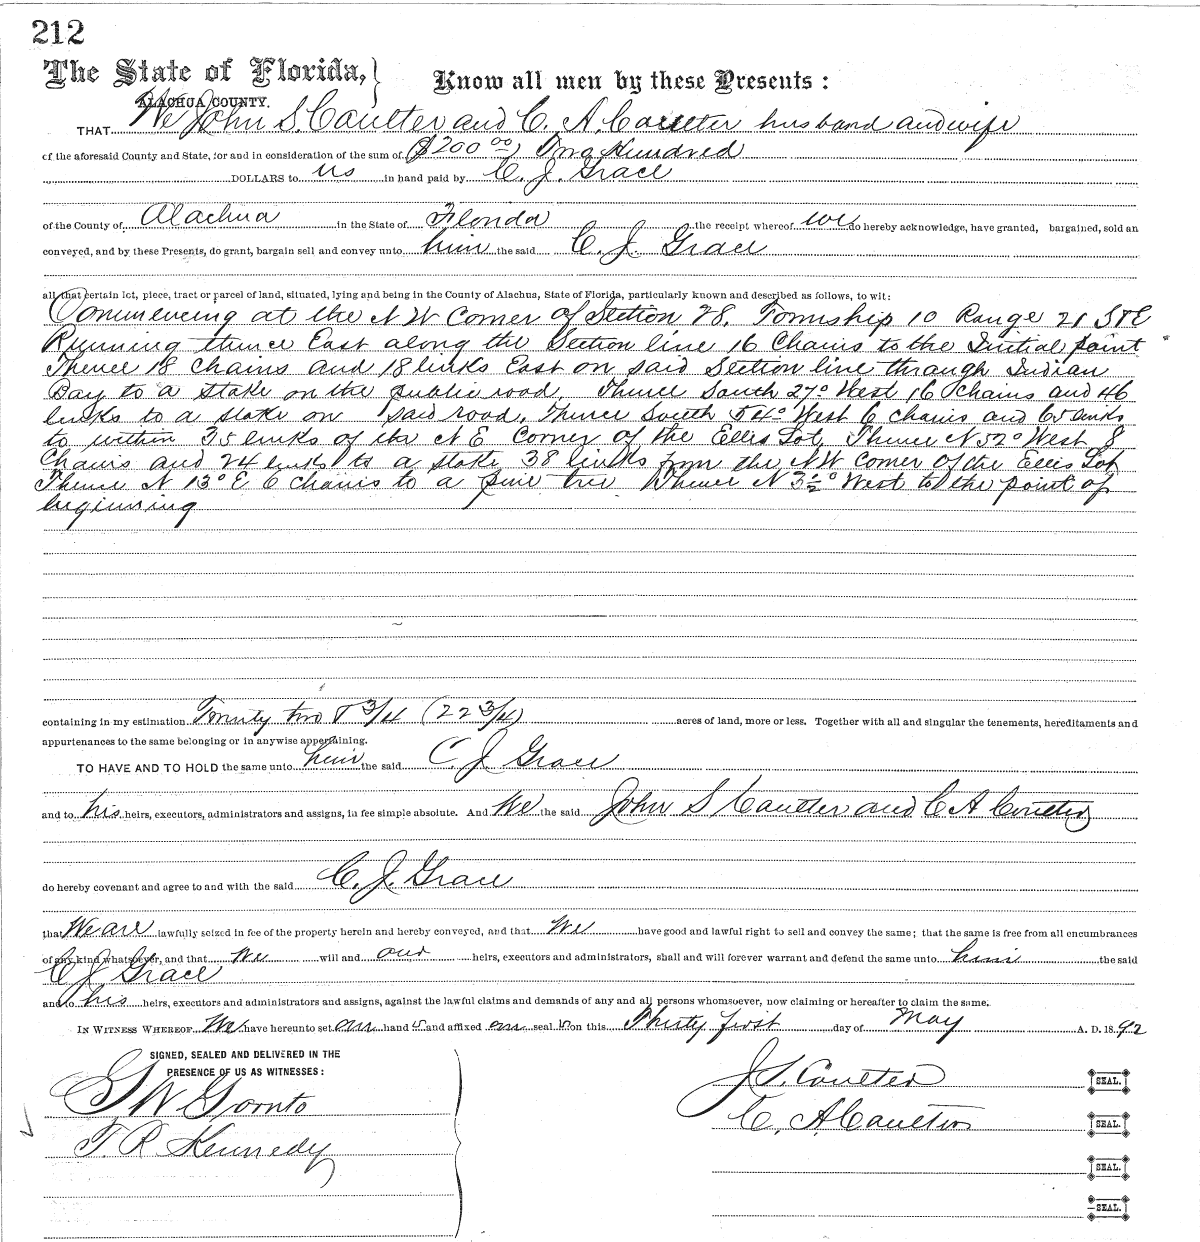 212
The State of Florida,} Know all men by these Presents :
ALACHUA COUNTY.
THAT We John S. Coulter and C. A. Coulter husband and wife
of the aforesaid County and State, for and in consideration of the sum of ($200 00) Hundred
DOLLARS to us in hand paid by C. J. Grace
of the County of Alachua in the State of Florida the receipt whereof we do hereby acknowledge, have granted, bargained, sold an
conveyed, and by these Presents, do grant, bargain sell and convey unto him the said C. J. Grace
all that certain lot, piece, tract or parcel of land, situated, lying and being in the County of Alachua, State of Florida, particularly known and described as follows, to wit:
Commencing at the N W Corner of Section 28. Township 10 Range 21 S & E
Running thence East along the Section line 16 Chains to the Initial point
Thence 18 Chains and 18 links East on said Section line through Indian
Bay to a stake on the public road. Thence South 27° West 16 Chains and 46
links to a stake on said road. Thence South 54° West 6 chains and 65 links
to within 35 links of the N E Corner of the Ellis Lot, Thence N 52° West 8
Chains and 24 links to a stake 38 links from the N W Corner of the Ellis Lot
Thence N 13° E 6 Chains to a pine tree Thence N 3½° West to the point of
beginning
containing in my estimation Twenty two & 3/4 (22 3/4) acres of land, more or less. Together with all and singular the tenements, hereditaments and
appurtenances to the same belonging or in anywise appertaining.
TO HAVE AND TO HOLD the same unto him the said C. J. Grace
and to his heirs, executors, administrators and assigns, in fee simple absolute. And We the said John S Coulter and C A Coulter
do hereby covenant and agree to and with the said C. J. Grace
that We are lawfully seized in fee of the property herein and hereby conveyed, and that We have good and lawful right to sell and convey the same; that the same is free from all encumbrances
of any kind whatsoever, and that We will and our heirs, executors and administrators, shall and will forever warrant and defend the same unto him the said
C J Grace
and to his heirs, executors and administrators and assigns, against the lawful claims and demands of any and all persons whomsoever, now claiming or hereafter to claim the same.
IN WITNESS WHEREOF We have hereunto set our hand s and affixed our seal s on this Thirty first day of May A. D. 1892
SIGNED, SEALED AND DELIVERED IN THE
PRESENCE OF US AS WITNESSES :
G W Gornto
T. R. Kennedy
J. S. Coulter SEAL.
C. A. Coulter SEAL.
SEAL.
SEAL.